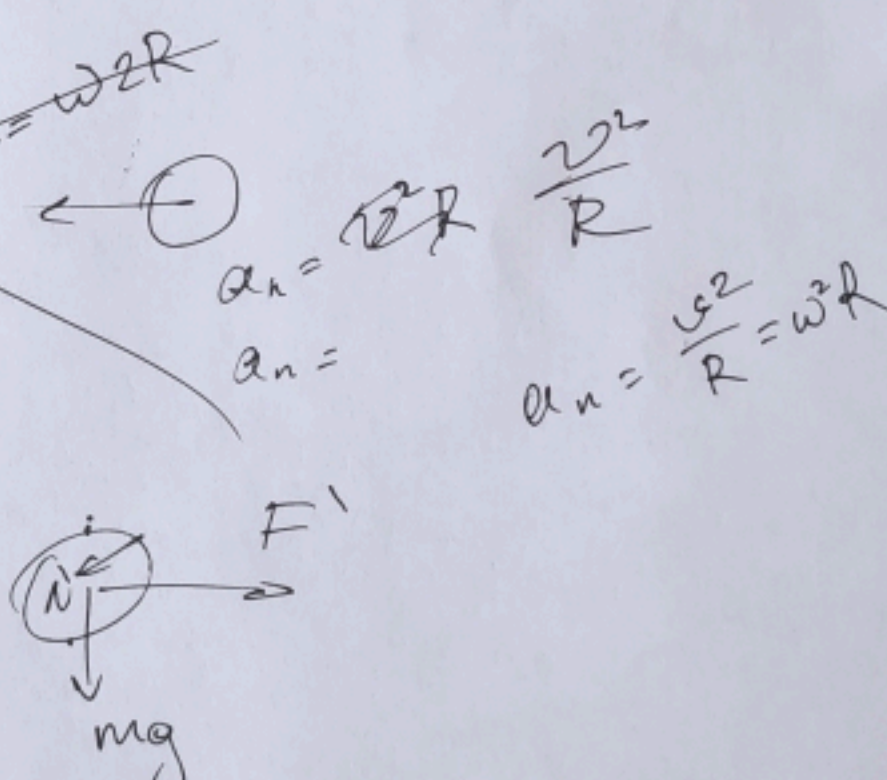 = ω2R
aₙ = v²R v²/R
aₙ =
aₙ = v²/R = ω²R
F'
N
mg